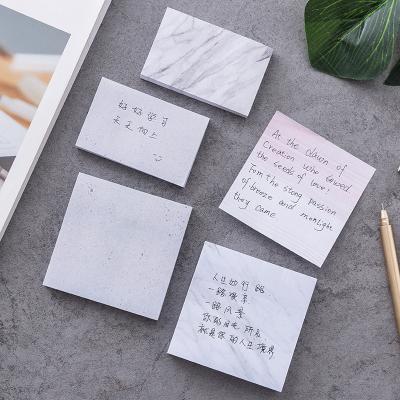 好好学习
天天向上
At the dawn of
Creation who sowed
the seeds of love?
From the stong passion
of breeze and monlight
they came
人生如行路
一路艰辛
一路风景
你的目光所及
就是你的人生境界